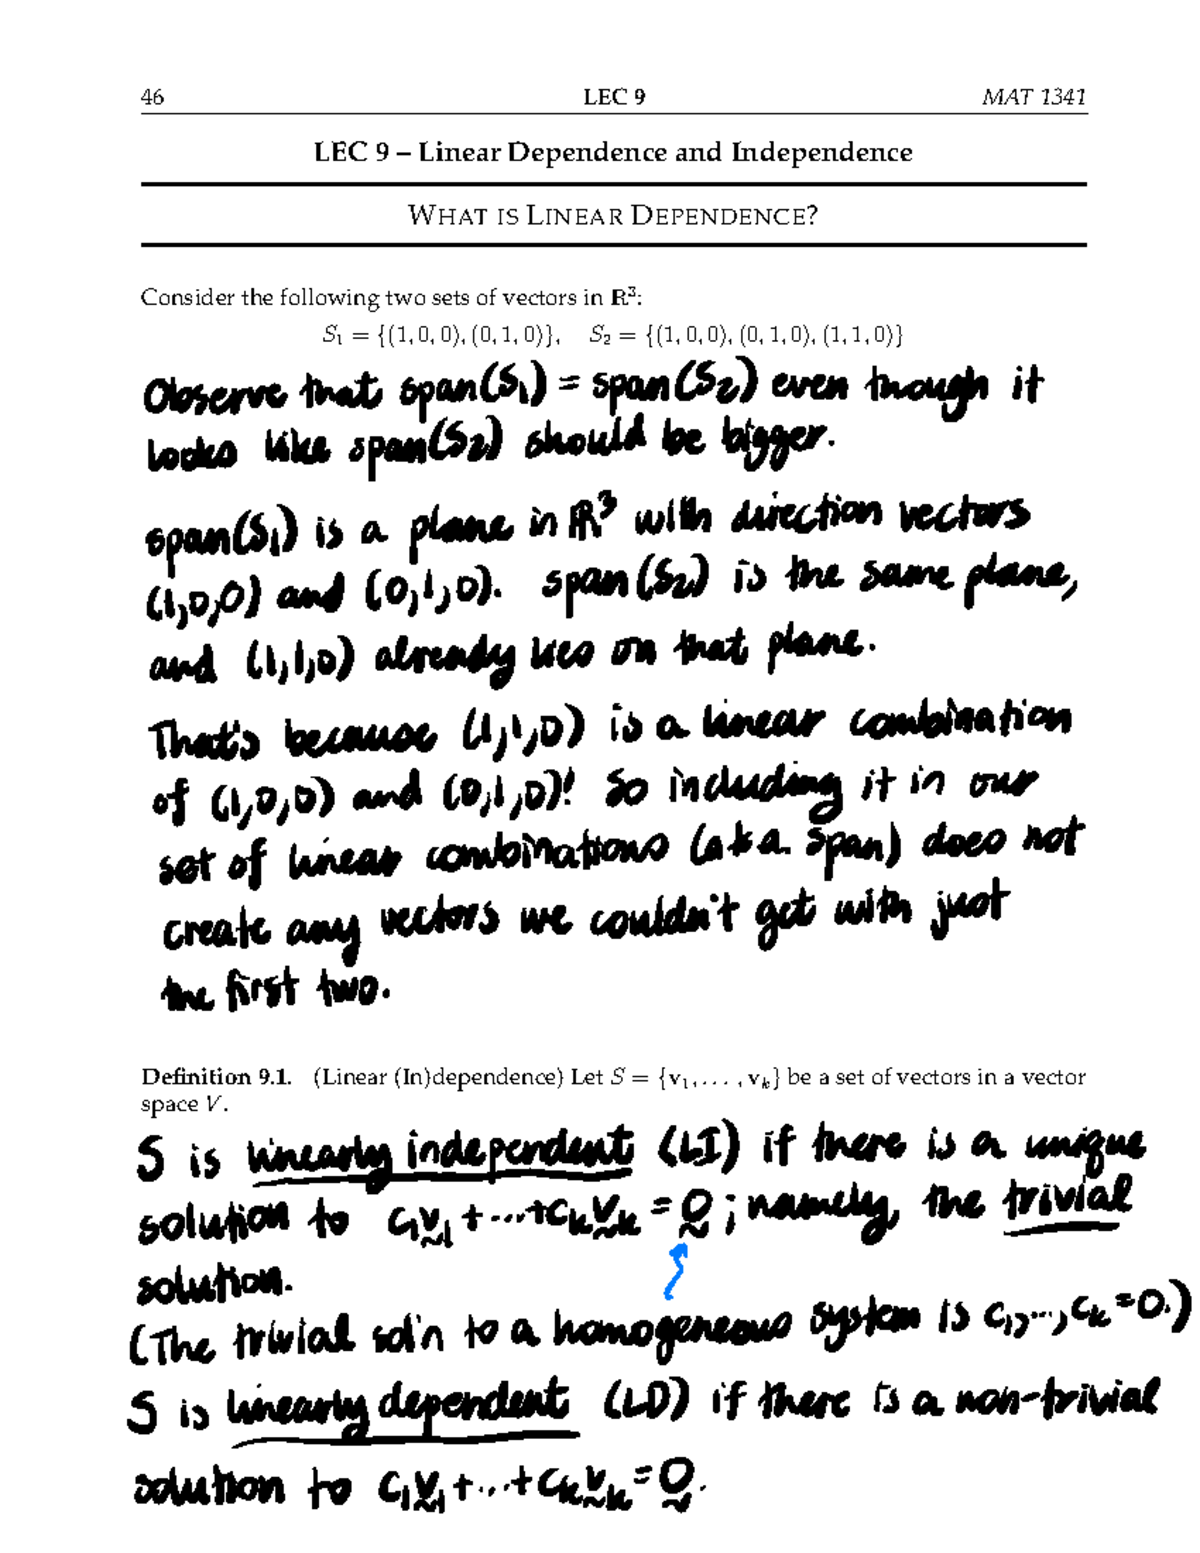 46 LEC 9 MAT 1341
LEC 9 – Linear Dependence and Independence
WHAT IS LINEAR DEPENDENCE?
Consider the following two sets of vectors in ℝ³:
S₁ = {(1, 0, 0), (0, 1, 0)}, S₂ = {(1, 0, 0), (0, 1, 0), (1, 1, 0)}
Observe that span(S₁) = span(S₂) even though it
looks like span(S₂) should be bigger.
span(S₁) is a plane in ℝ³ with direction vectors
(1,0,0) and (0,1,0). span(S₂) is the same plane,
and (1,1,0) already lies on that plane.
That's because (1,1,0) is a linear combination
of (1,0,0) and (0,1,0)! So including it in our
set of linear combinations (aka. span) does not
create any vectors we couldn't get with just
the first two.
Definition 9.1. (Linear (In)dependence) Let S = {v₁, . . . , vₖ} be a set of vectors in a vector
space V.
S is linearly independent (LI) if there is a unique
solution to c₁v₁ + ... + cₖvₖ = 0 ; namely, the trivial
solution.
(The trivial sol'n to a homogeneous system is c₁,...,cₖ = 0.)
S is linearly dependent (LD) if there is a non-trivial
solution to c₁v₁ + ... + cₖvₖ = 0.